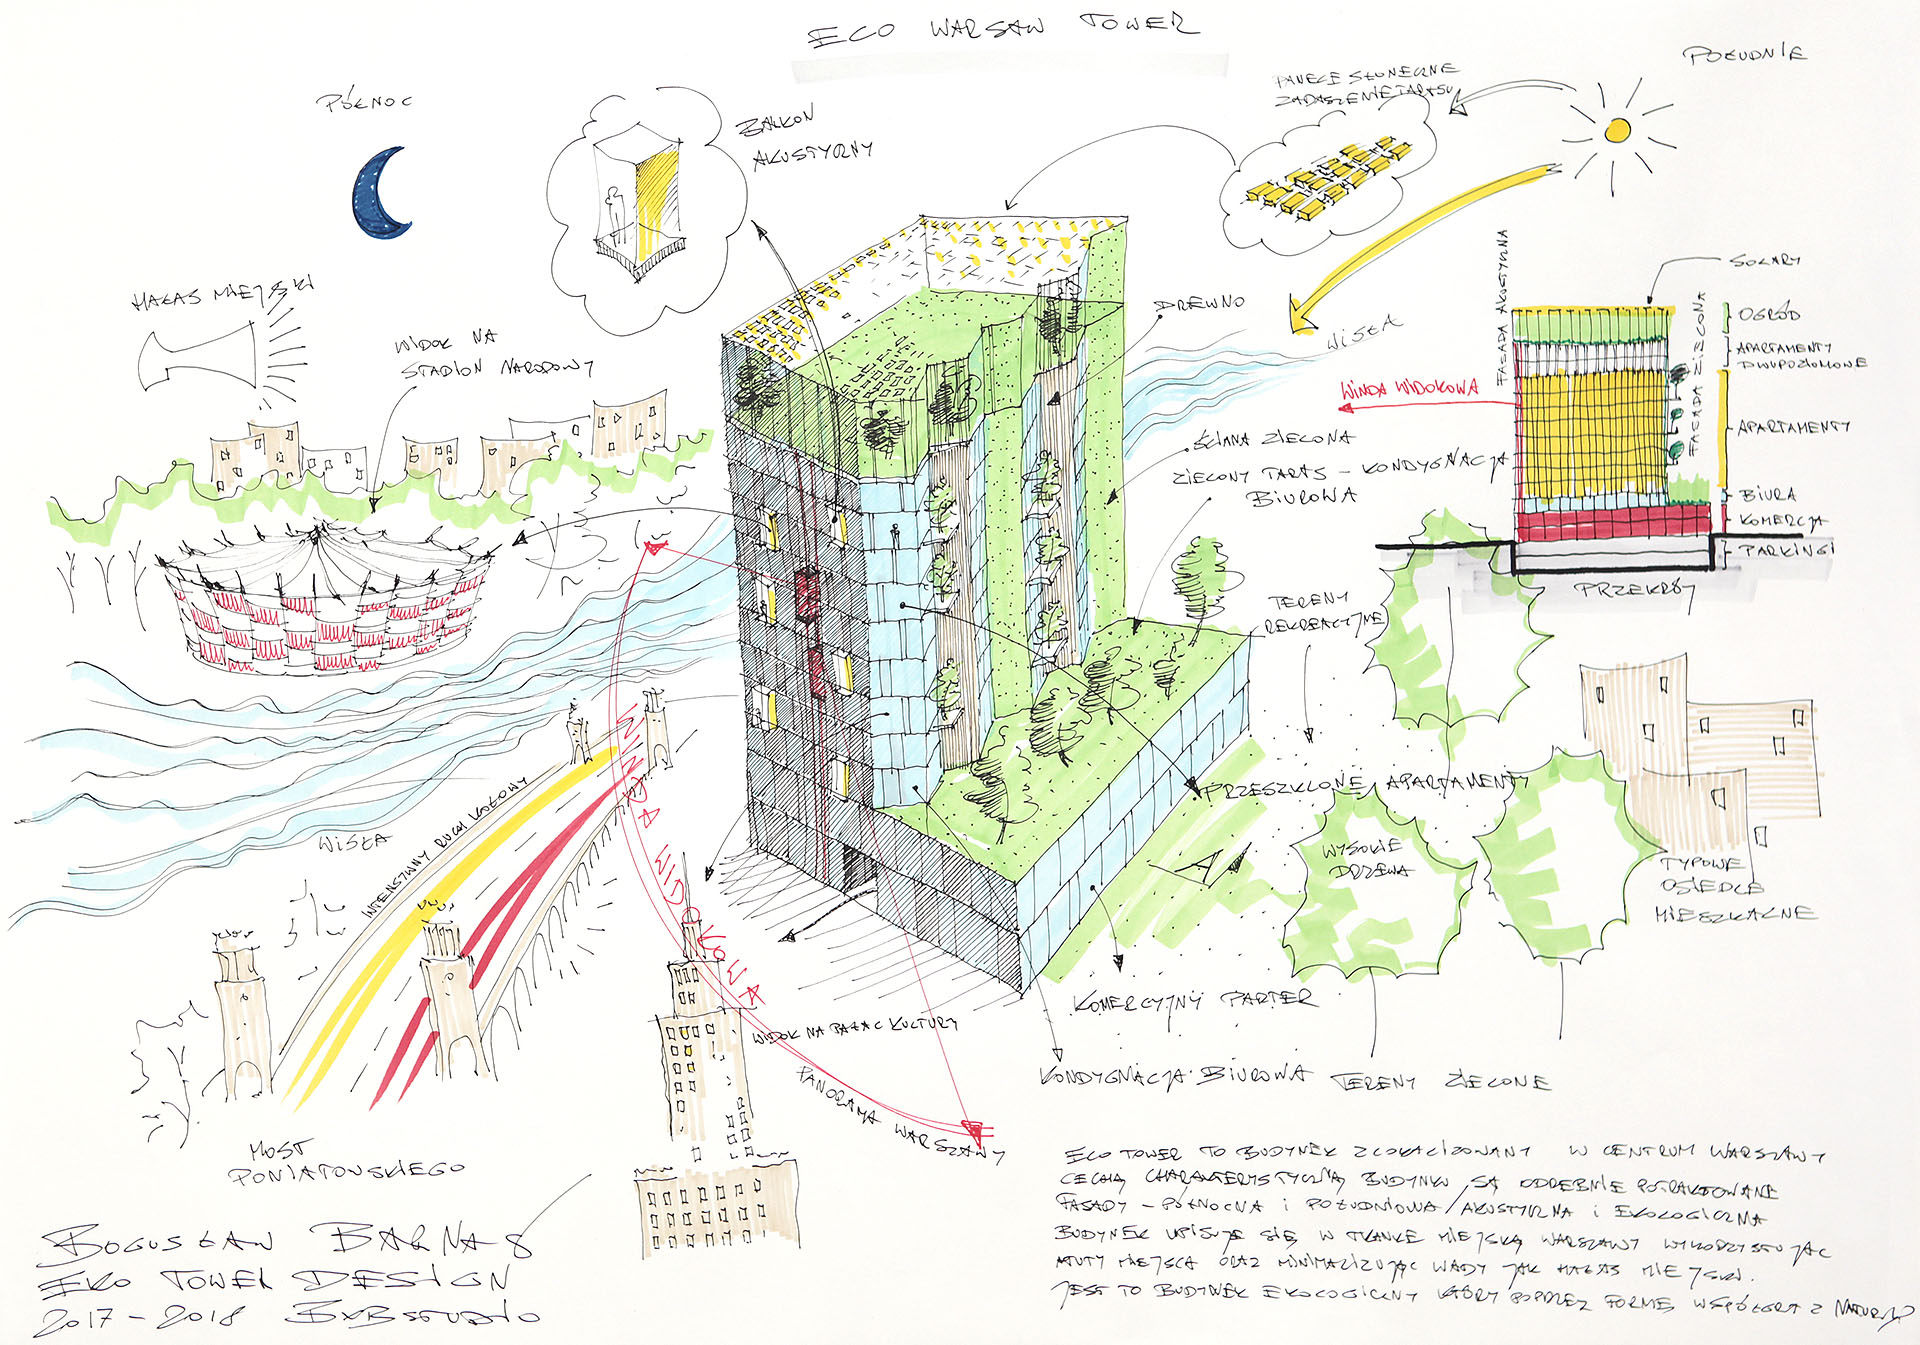 ECO WARSAW TOWER
POŁUDNIE
PANELE SŁONECZNE
ZADASZENIE TARASU
PÓŁNOC
BALKON
AKUSTYCZNY
HAŁAS MIEJSKI
WIDOK NA
STADION NARODOWY
DREWNO
WISŁA
FASADA AKUSTYCZNA
FASADA ZIELONA
SOLARY
OGRÓD
APARTAMENTY
DWUPOZIOMOWE
WINDA WIDOKOWA
APARTAMENTY
ŚCIANA ZIELONA
ZIELONY TARAS - KONDYGNACJA
BIUROWA
BIURA
KOMERCJA
PARKINGI
PRZEKRÓJ
TERENY
REKREACYJNE
PRZESZKLONE APARTAMENTY
WISŁA
INTENSYWNY RUCH KOŁOWY
WINDA WIDOKOWA
WYSOKIE
DRZEWA
TYPOWE
OSIEDLE
MIESZKALNE
KOMERCYJNY PARTER
WIDOK NA PAŁAC KULTURY
PANORAMA WARSZAWY
KONDYGNACJA BIUROWA
TERENY ZIELONE
MOST
PONIATOWSKIEGO
ECO TOWER TO BUDYNEK ZLOKALIZOWANY W CENTRUM WARSZAWY
CECHĄ CHARAKTERYSTYCZNĄ BUDYNKU SĄ ODRĘBNIE POTRAKTOWANE
FASADY - PÓŁNOCNA I POŁUDNIOWA / AKUSTYCZNA I EKOLOGICZNA
BUDYNEK WPISUJE SIĘ W TKANKĘ MIEJSKĄ WARSZAWY WYKORZYSTUJĄC
ATUTY MIEJSCA ORAZ MINIMALIZUJĄC WADY JAK HAŁAS MIEJSKI.
JEST TO BUDYNEK EKOLOGICZNY KTÓRY POPRZEZ FORMĘ WSPÓŁGRA Z NATURĄ
BOGUSŁAW BARNAŚ
EKO TOWER DESIGN
2017-2018 BXBSTUDIO